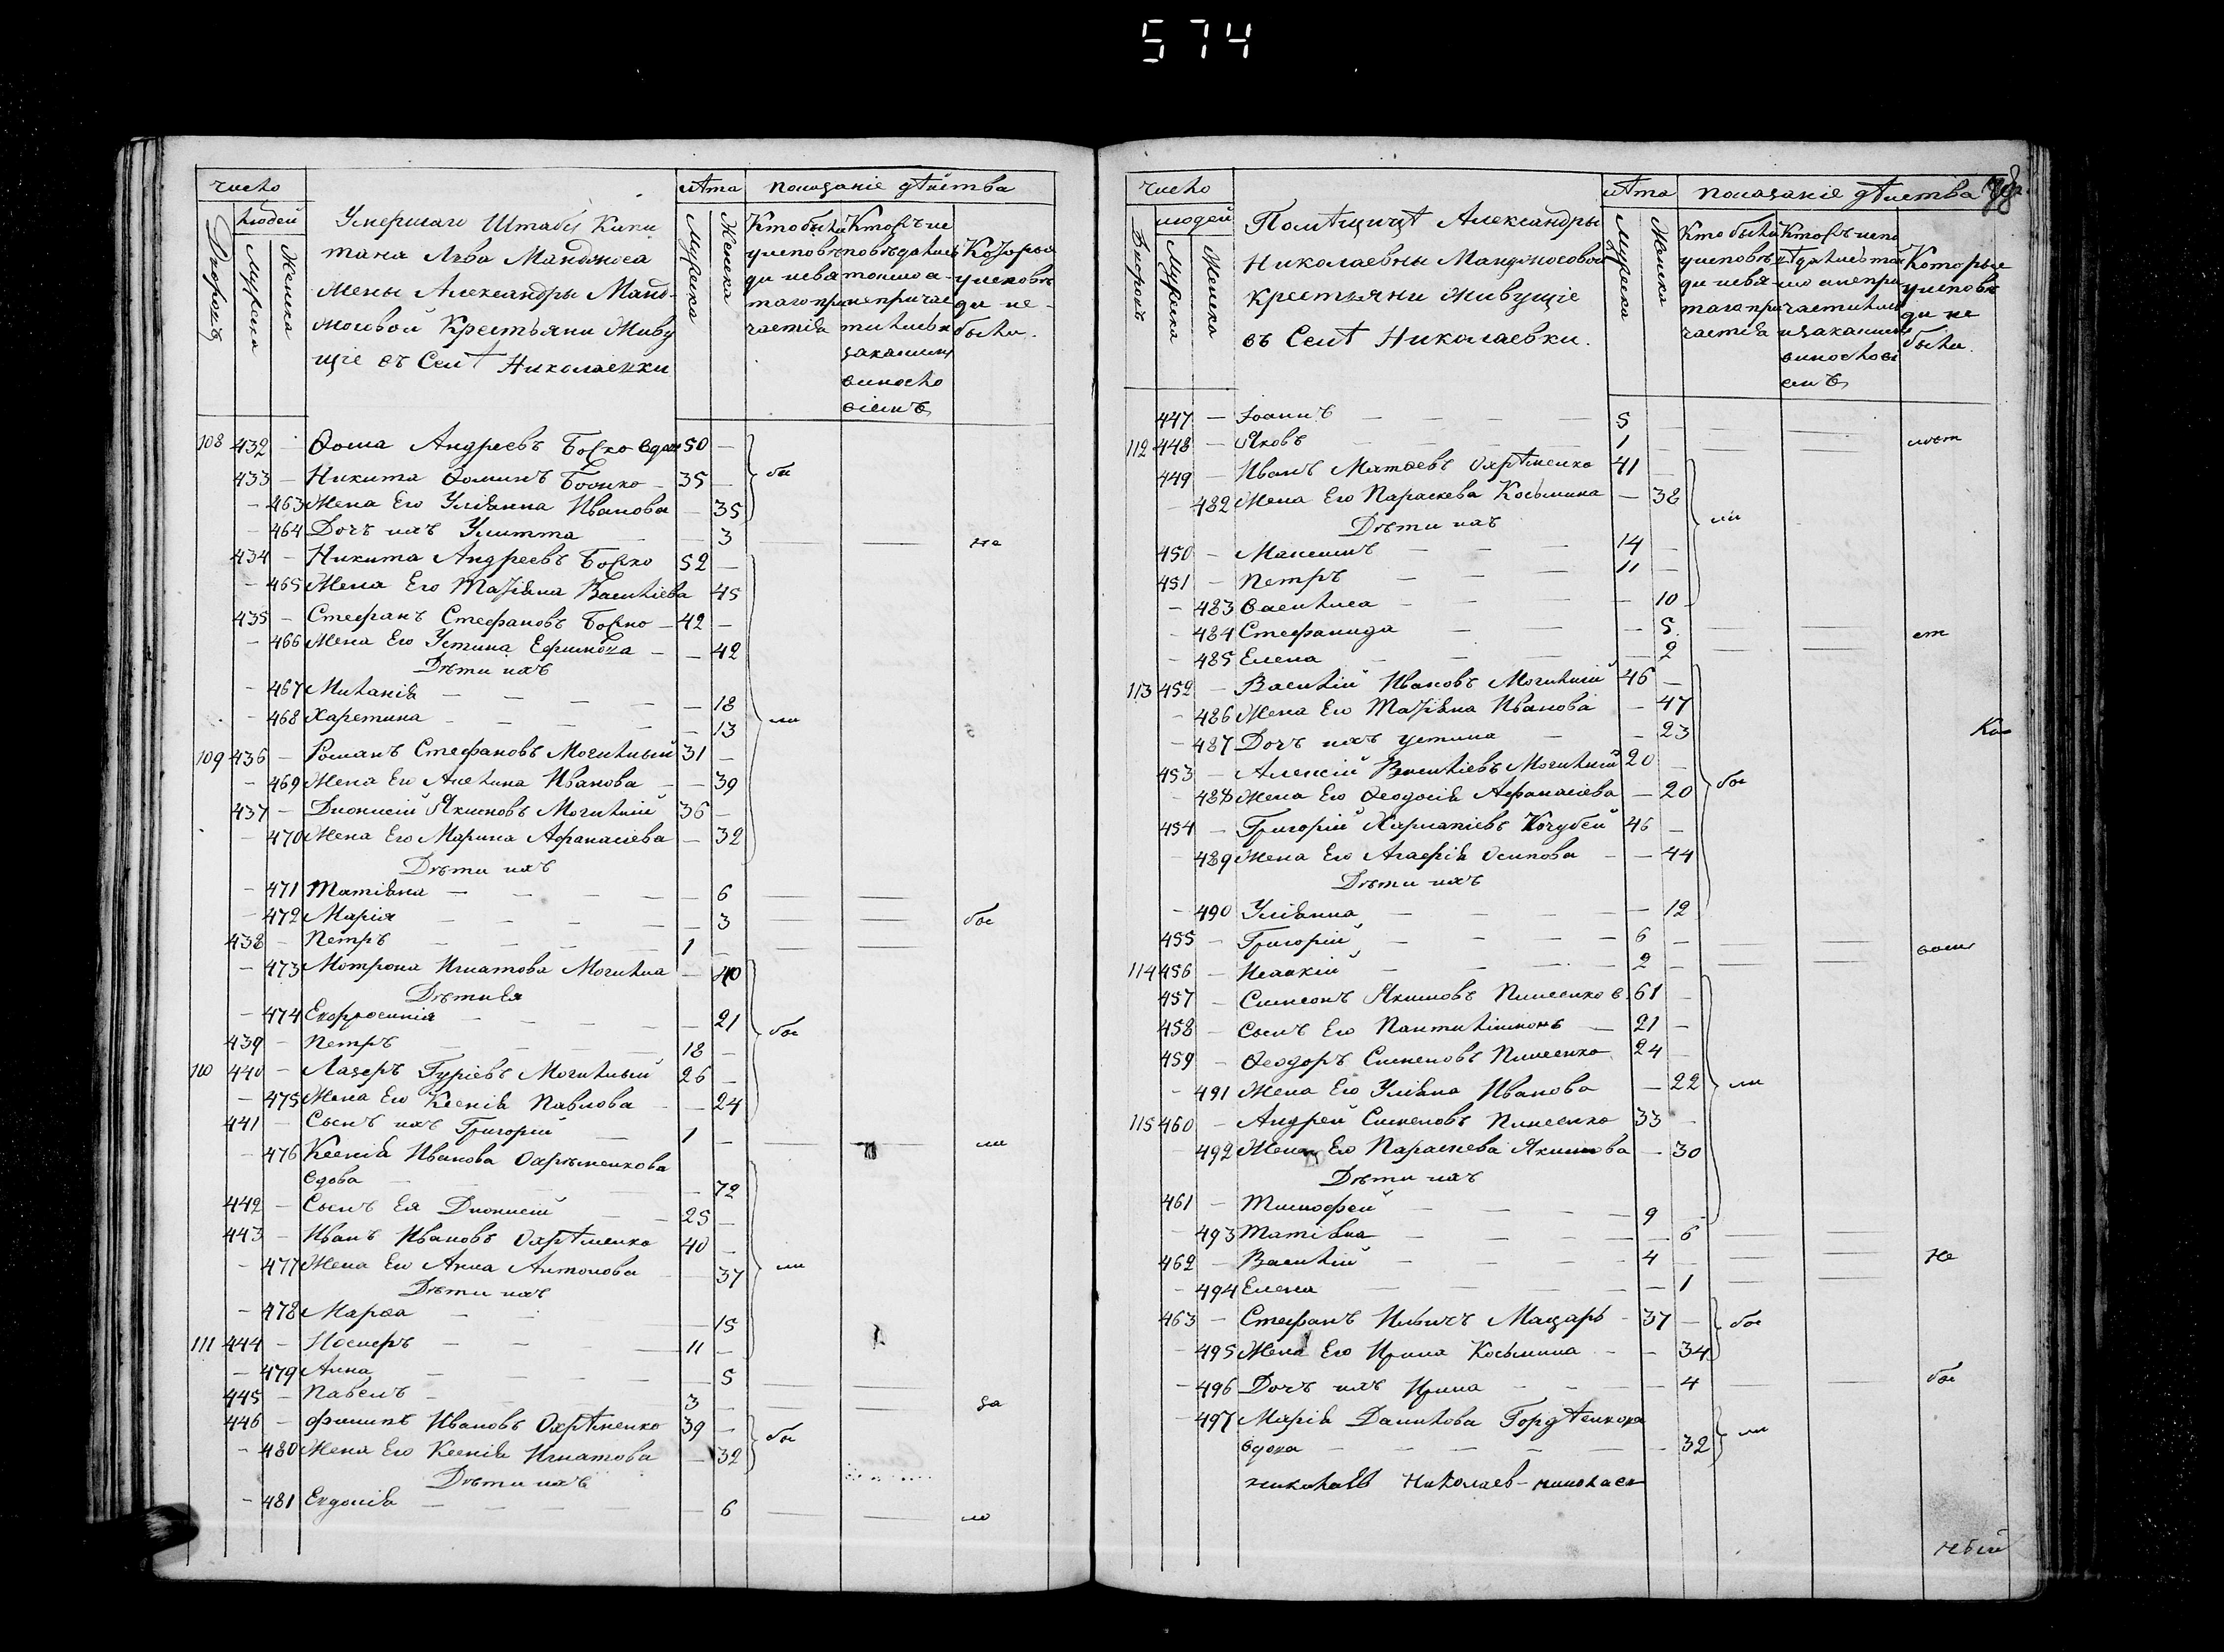 574
число
людей
Дворовъ
Мужеска
Женска
Умершаго Штабсъ Капи
тана Льва Мандноса
жены Александры Манд-
носовой Крестьяни Живу
щіе въ Селѣ Николаевки
лѣта
Мужеска
Женска
показаніе дѣйства
Кто были
у исповѣ
ди и свя
таго при
частія
Которые
были.
108 432 - Ѳома Андреевъ 50 -
433 - Никита Ѳоминъ - 35 - бы
- 463 Жена Его Уліянна Иванова - 35
- 464 Дочъ ихъ Улитта - 3 не
434 - Никита Андреевъ 52 -
- 465 Жена Его Татіяна Василіева 45
435 - Стефанъ Стефановъ - 42 -
- 466 Жена Его Устина Ефимова - - 42
Дѣти ихъ
- 467 Миланія - - - - - 18
- 468 Харетина - - - - - 13 ли
109 436 - Романъ Стефановъ Могилный 31 -
- 469 Жена Его Акелина Иванова - - 39
437 - Дионисій Якимовъ Могилній 36 -
- 470 Жена Его Марина Афанасіева - 32
Дѣти ихъ
- 471 Татіяна - - - - - 6
- 472 Марія - - - - - 3 бы
438 - Петръ - - - - 1 -
- 473 Мотрона Игнатова Могилна - 40
Дѣти Ея
- 474 Евфросинія - - - - 21
439 - Петръ - - - - 18 - бы
110 440 - Лазеръ Гуріевъ Могилный 26 -
- 475 Жена Его Ксенія Павлова - - 24
441 - Сынъ ихъ Григорій - 1 - ли
- 476 Ксенія Иванова Охрѣменкова
вдова - - 72
442 - Сынъ Ея Дионисій - - 25 -
443 - Иванъ Ивановъ Охрѣменко 40 -
- 477 Жена Его Анна Антонова - - 37 ли
Дѣти ихъ
- 478 Марѳа - - - 15
111 444 - Носперъ - - - 11 -
- 479 Анна - - - - - 5
445 - Павелъ - 3 - за
446 - Филипъ Ивановъ Охрѣменко 39 -
- 480 Жена Его Ксенія Игнатова - 32 бы
Дѣти ихъ
- 481 Евдокія - - - - - 6 ло
число
людей
Дворовъ
Мужеска
Женска
Помѣщицѣ Александры
Николаевны Мандносовой
крестьяни живущіе
въ Селѣ Николаевки.
лѣта
Мужеска
Женска
показаніе дѣйства
Кто были
у исповѣ
ди и свя
таго при
частія
Которые
у исповѣ
ди не
были.
447 - Іоаннъ - - - - 5 -
112 448 - Яковъ - - - - 1 -
449 - Иванъ Матвевъ Охрѣменко 41 -
- 482 Жена Его Параскева Косьмина - 38
Дѣти ихъ ли
450 - Максимъ - - - 14 -
451 - Петръ - - - 11 -
- 483 Василиса - - - - 10
- 484 Стефанида - - - 5
- 485 Елена - - - - 2
113 452 - Василій Ивановъ Могилній 46 -
- 486 Жена Его Татіяна Иванова - 47
- 487 Дочъ ихъ устина - - 23
453 - Алексій Василіевъ Могилній 20 -
- 488 Жена Его Ѳеодосія Афанасіева - 20 бы
454 - Григорій Харлапіевъ Кочубей 46 -
- 489 Жена Его Агафія Осипова - - 44
Дѣти ихъ
- 490 Уліянна - - - - - 12
455 - Григорій - - - - 6 -
114 456 - Исаакій - - - - 2 -
457 - Симеонъ Якимовъ в. 61 -
458 - Сынъ Его Пантилимонъ - 21 -
459 - Ѳеодоръ Сименовъ 24 -
- 491 Жена Его Уліяна Иванова - 22 ли
115 460 - Андрей Сименовъ 33 -
- 492 Жена Его Параскева Якимова - 30
Дѣти ихъ
461 - Тимофей - - - - 9 -
- 493 Татіяна - - - - - 6
462 - Василій - - - - 4 - Не
- 494 Елена - - - - - 1
463 - Стефанъ Ильичъ Мацарь - 37 - бы
- 495 Жена Его Ирина Косьмина - - 34
- 496 Дочъ ихъ Ирина - - - 4 бы
- 497 Марія Данилова Гордѣенкова
вдова - - - - - - 32 ли
николаев Николаев-николаев